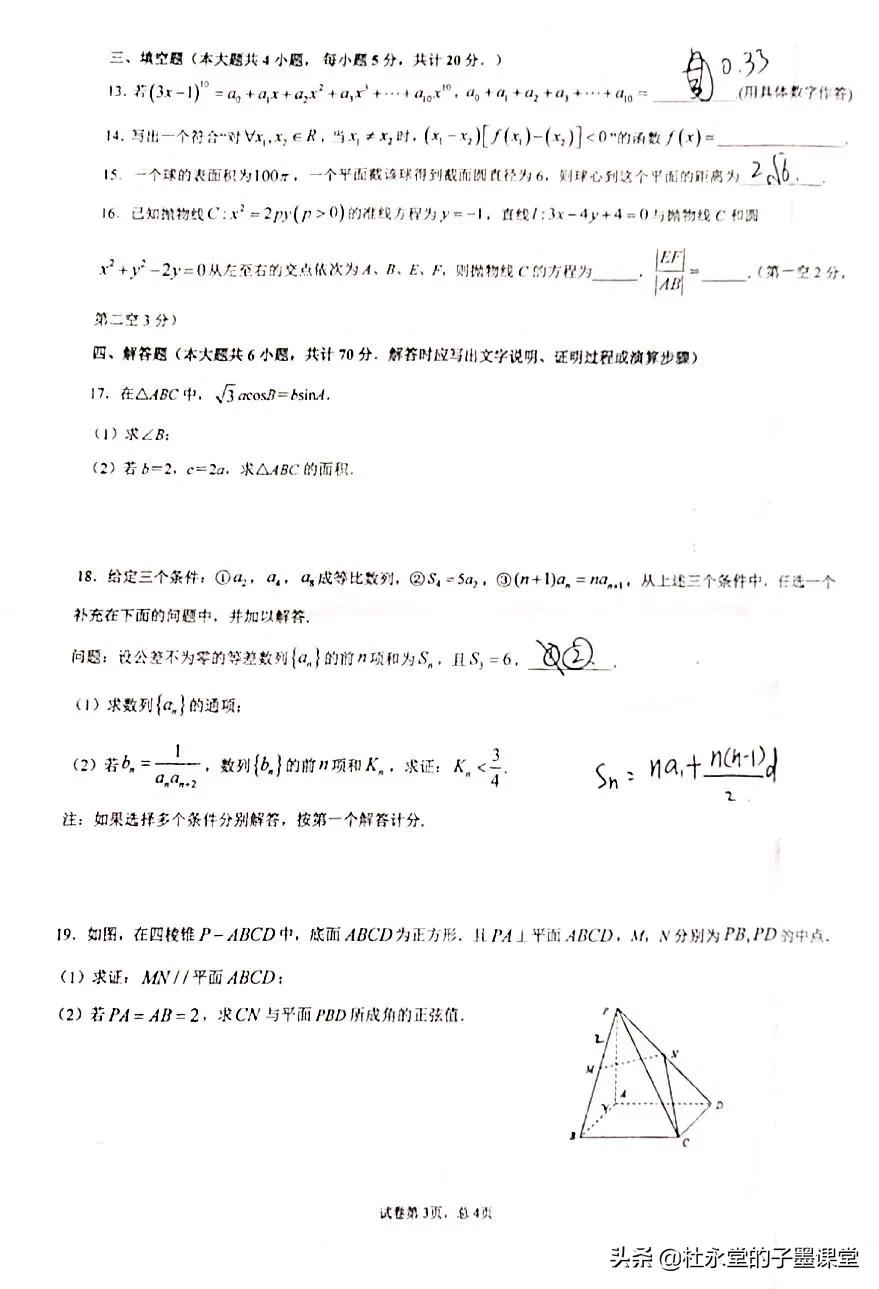 三、填空题（本大题共4小题， 每小题5分，共计20分．）
0.33
13. 若(3x−1)^10 = a₀ + a₁x + a₂x² + a₃x³ + ⋯ + a₁₀x^10，a₀ + a₁ + a₂ + a₃ + ⋯ + a₁₀ = ______(用具体数字作答)
14. 写出一个符合“对∀x₁, x₂ ∈ R，当x₁ ≠ x₂时，(x₁ − x₂)[f(x₁)−(x₂)] < 0”的函数f(x) = ______．
15. 一个球的表面积为100π，一个平面截该球得到截面圆直径为6，则球心到这个平面的距离为 2√6．
16. 已知抛物线C: x² = 2py(p > 0)的准线方程为y = −1，直线l: 3x − 4y + 4 = 0与抛物线C和圆
x² + y² − 2y = 0从左至右的交点依次为A、B、E、F，则抛物线C的方程为______，|EF|/|AB| = ______．（第一空2分，
第二空3分）
四、解答题（本大题共6小题，共计70分．解答时应写出文字说明、证明过程或演算步骤）
17. 在△ABC中，√3acosB＝bsinA．
（1）求∠B；
（2）若b＝2，c＝2a，求△ABC的面积．
18. 给定三个条件：①a₂，a₄，a₈成等比数列，②S₄ = 5a₂，③(n+1)aₙ = naₙ₊₁，从上述三个条件中，任选一个
补充在下面的问题中，并加以解答．
问题：设公差不为零的等差数列{aₙ}的前n项和为Sₙ，且S₃ = 6，②．
（1）求数列{aₙ}的通项；
（2）若bₙ = 1/(aₙaₙ₊₂)，数列{bₙ}的前n项和Kₙ，求证：Kₙ < 3/4．
Sn = na₁ + n(n-1)/2 d
注：如果选择多个条件分别解答，按第一个解答计分．
19. 如图，在四棱锥P−ABCD中，底面ABCD为正方形．且PA⊥平面ABCD，M，N分别为PB,PD的中点．
（1）求证：MN//平面ABCD；
（2）若PA = AB = 2，求CN与平面PBD所成角的正弦值．
P
2
N
M
A
D
B
C
试卷第3页，总4页
头条 @杜永堂的子墨课堂